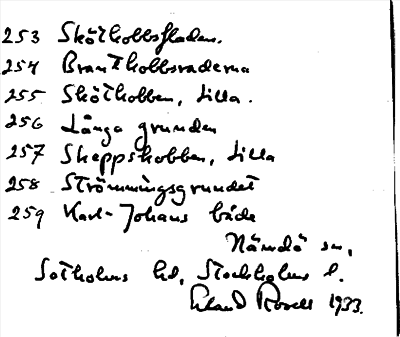 253 Skötkobbsfladen.
254 Brantkobbsraderna
255 Skötkobben, Lilla.
256 Långa grunden
257 Skeppskobben, Lilla
258 Strömmingsgrundet
259 Karl-Johans både
Nämdö sn,
Sotholms hd, Stockholms l.
Erland Rosell 1933.